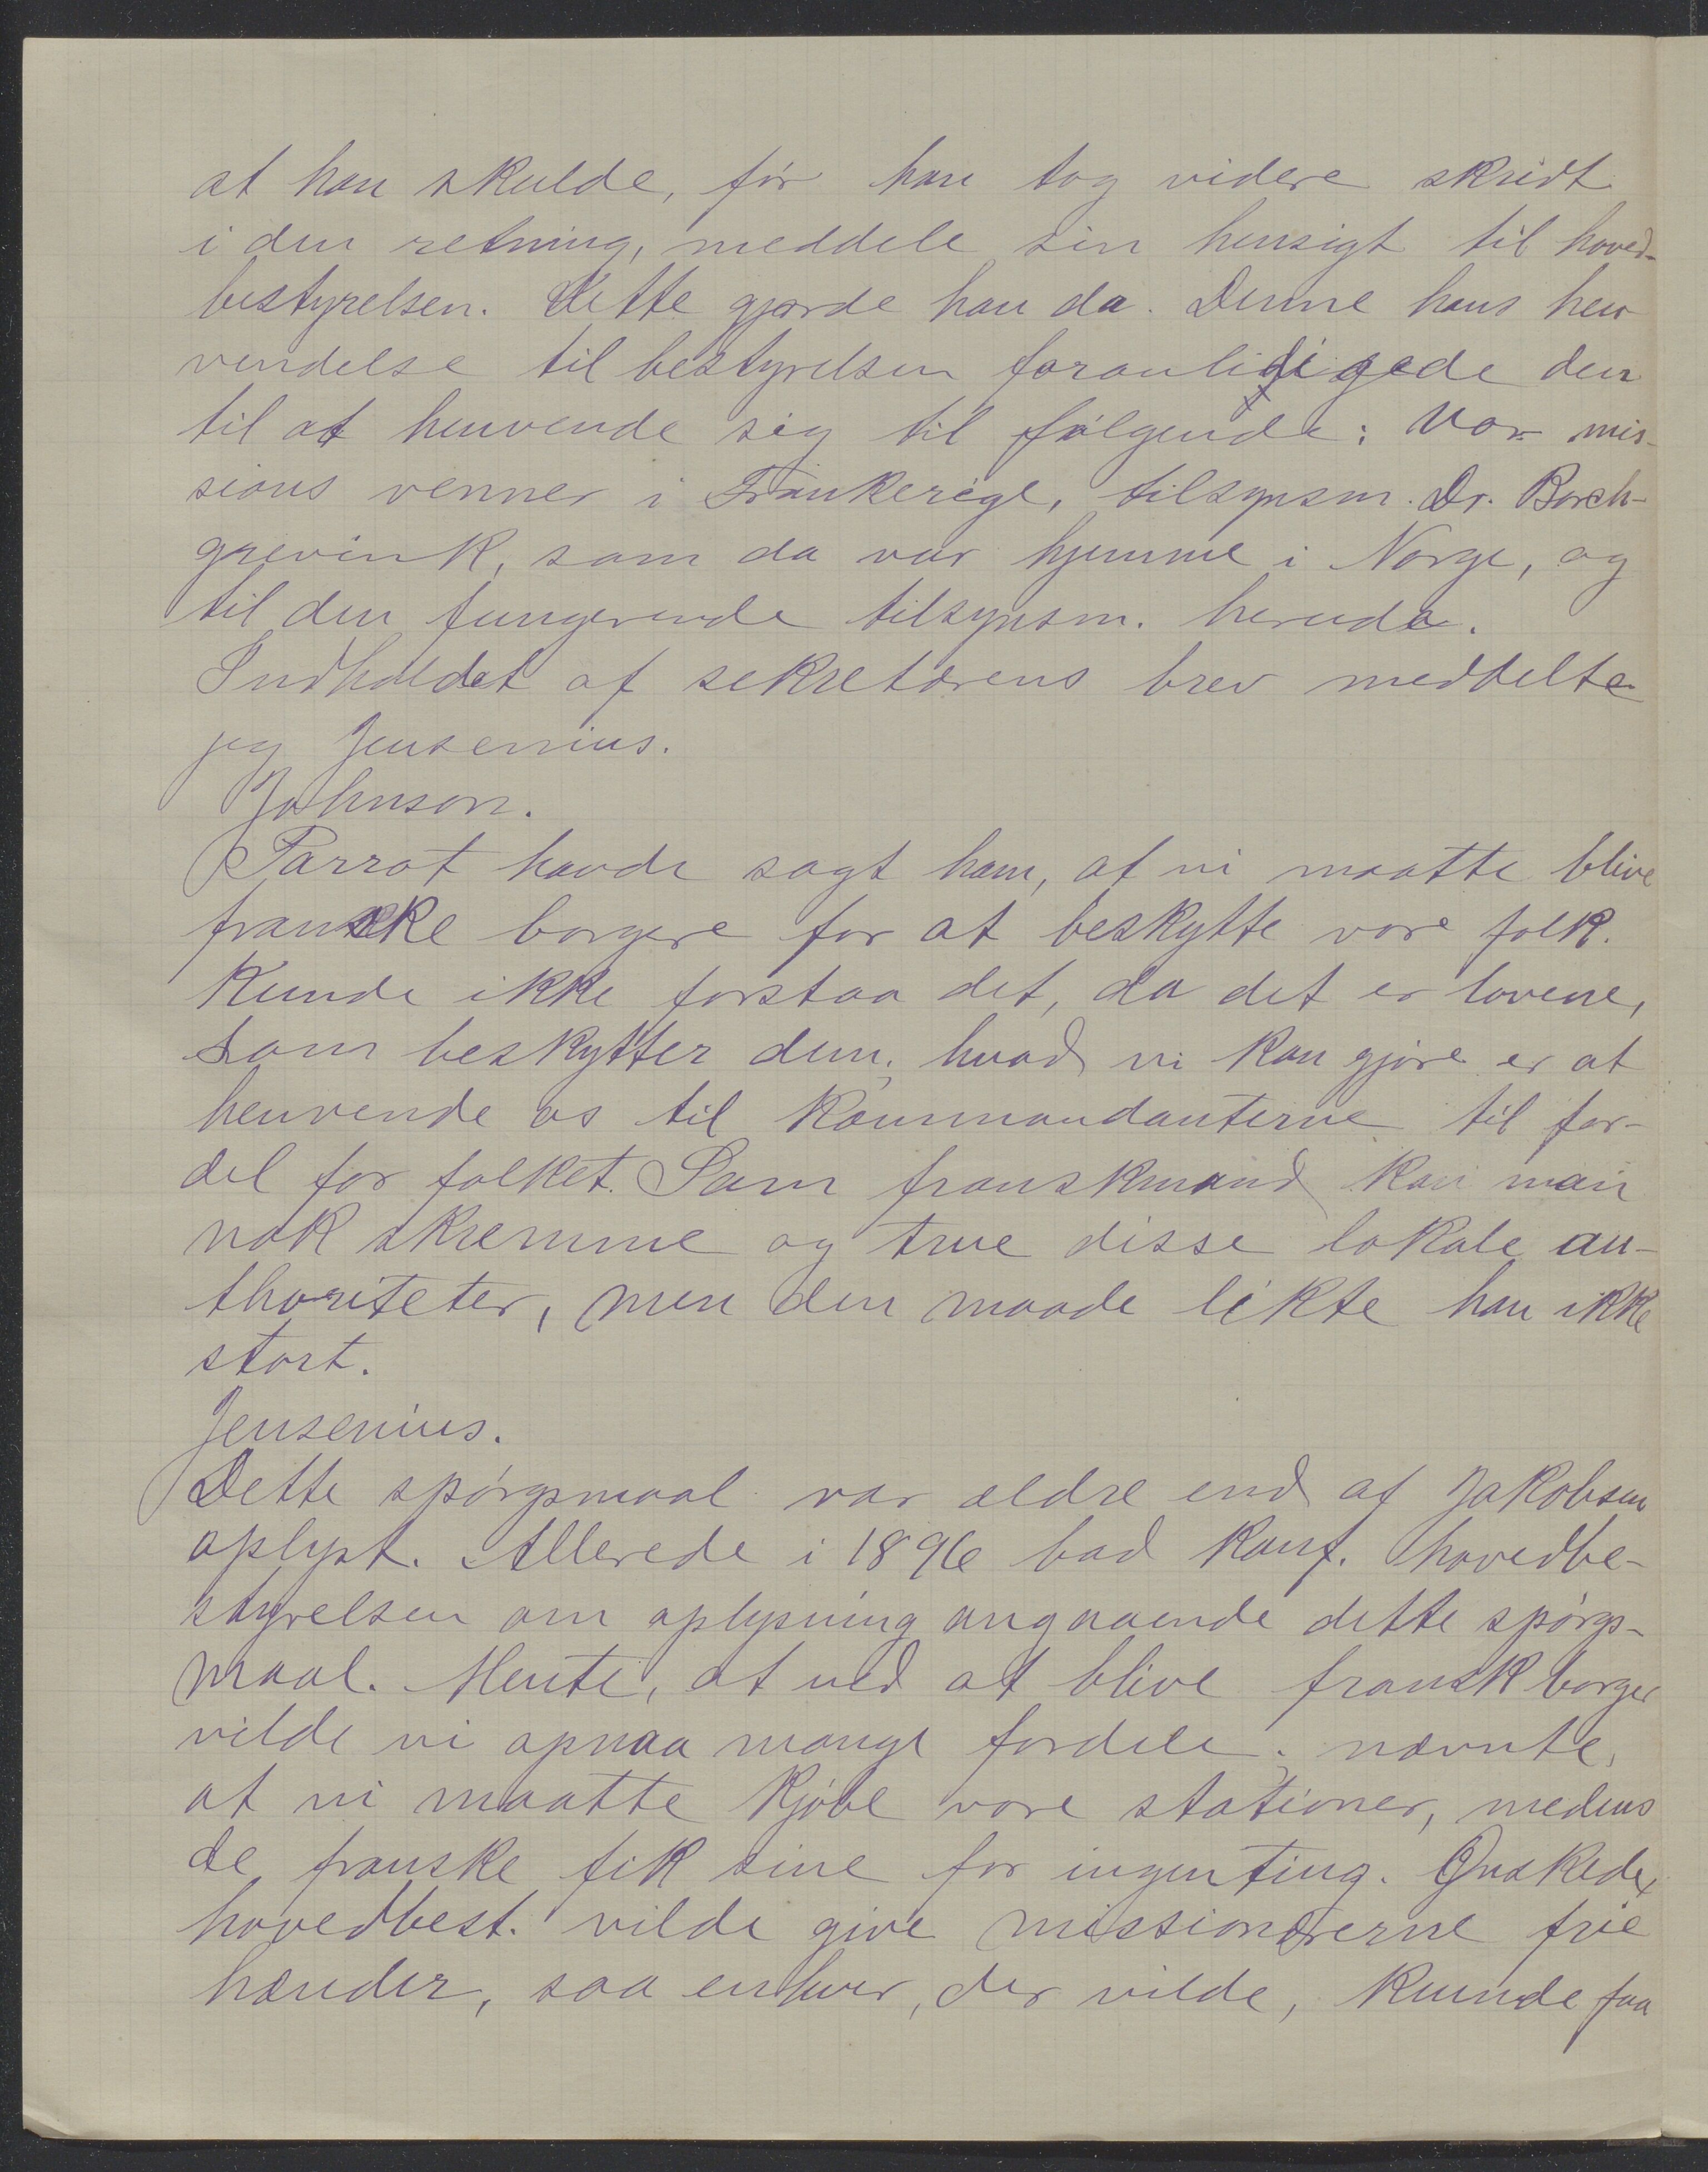 at han skulde, før han tog videre skridt
i den retning, meddele sin hensigt til hoved-
bestyrelsen. Dette gjorde han da. Denne hans hen
vendelse til bestyrelsen foranledigede den
til at henvende sig til følgende: Vor mis-
sions venner i Frankerige, tilsynsm. Dr. Borch-
grevink, som da var hjemme i Norge, og
til den fungerende tilsynsm. herude.
Indholdet af sekretærens brev meddelte
jeg Jensenius.
Johnson.
Parrot havde sagt ham, at vi maatte blive
franske borgere for at beskytte vore folk.
Kunde ikke forstaa det, da det er lovene,
som beskytter dem; hvad vi kan gjøre er at
henvende os til kommandanterne til for-
del for folket. Som franskmand kan man
nok skremme og true disse lokale au-
thoriteter, men den maade likte han ikke
stort.
Jensenius.
Dette spørgsmaal var ældre end af Jakobsen
oplyst. Allerede i 1896 bad konf. hovedbe-
styrelsen om oplysning angaaende dette spørgs-
maal. Mente, at ved at blive fransk borger
vilde vi opnaa mange fordele; nævnte,
at vi maatte kjøbe vore stationer, medens
de franske fik sine for ingenting. Ønskede,
hovedbest. vilde give missionærerne frie
hænder, saa enhver, der vilde, kunde faa